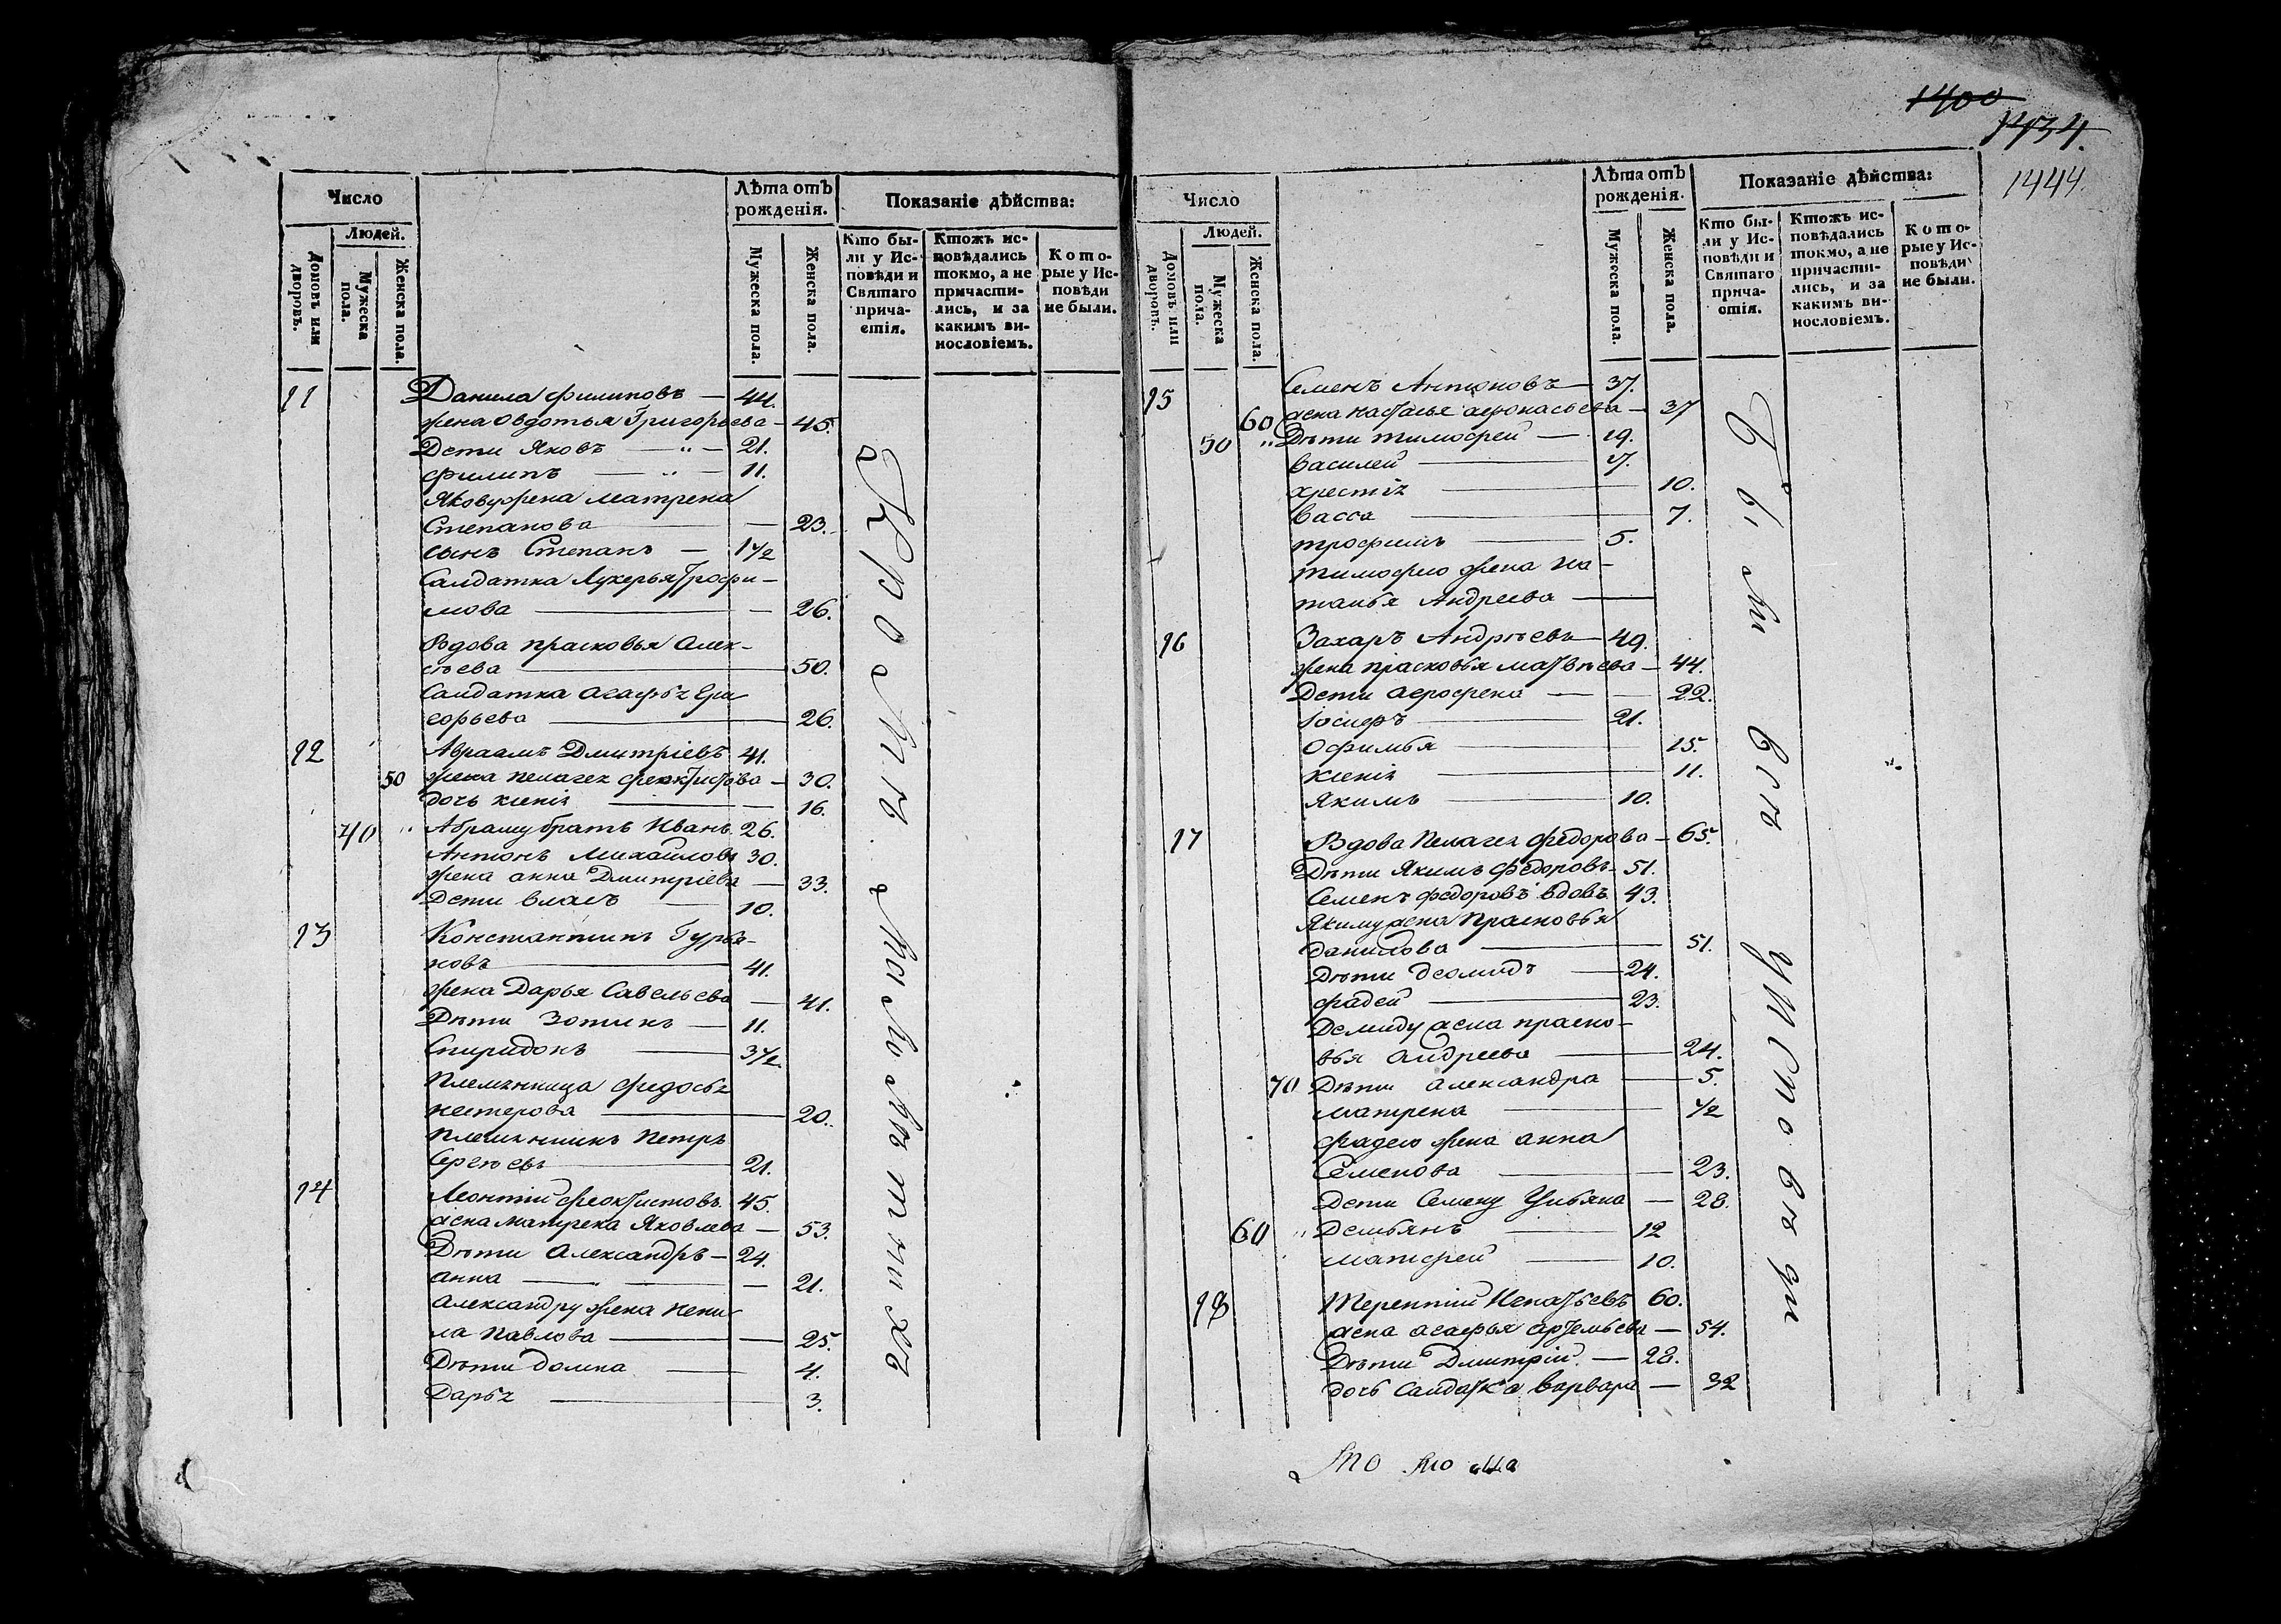 1400
1434.
1444.
Число
Людей.
Домовъ или дворовъ.
Мужеска пола.
Женска пола.
Лѣта отъ рожденія.
Мужеска пола.
Женска пола.
Показаніе дѣйства:
Кто были у Исповѣди и Святаго причастія.
Ктожъ исповѣдались токмо, а не причастились, и за какимъ винословіемъ.
Которые у Исповѣди не были.
11 Данила филиповъ — 44.
жена Овдотья Григорьева — 45.
Дети Яковъ — " — 21.
филипъ — " — 11.
Якову жена матрена
Степанова — 23.
сынъ Степанъ — 1 1/2
Салдатка Лукерья Трофи-
мова — 26.
Вдова прасковья Алек-
сѣева — 50.
Салдатка агафья Гри
горьева — 26.
12 Авраамъ Дмитріевъ 41.
50 жена пелагея феоктистова — 30.
дочь ксенія — 16.
40 " Абраму братъ Иванъ 26.
Антонъ Михайловъ 30.
жена анна Дмитріева — 33.
Дети власъ — 10.
13 Константинъ Гурья-
новъ — 41.
жена Дарья Савельева — 41.
Дѣти Зотикъ — 11.
Спиридонъ — 3 1/2
Племянница федосья
нестерова — 20.
племянникъ Петръ
Сергѣевъ — 21.
14 Леонтій феоктистовъ 45.
жена матрена Яковлева — 53.
Дѣти Александръ — 24.
анна — 21.
александру жена нени
ла павлова — 25.
Дѣти домна — 4.
Дарья — 3.
Число
Людей.
Домовъ или дворовъ.
Мужеска пола.
Женска пола.
Лѣта отъ рожденія.
Мужеска пола.
Женска пола.
Показаніе дѣйства:
Кто были у Исповѣди и Святаго причастія.
Ктожъ исповѣдались токмо, а не причастились, и за какимъ винословіемъ.
Которые у Исповѣди не были.
15 Семенъ Антоновъ — 37.
60 жена настасья афонасьева — 37
50 " Дѣти тимофей — 19.
василей —
хрестія — 10.
васса — 7.
трофимъ — 5.
тимофею жена на-
талья Андреева —
16 Захаръ Андрѣевъ — 49.
жена прасковья матвѣева — 44.
Дети афрофена — 22.
іосифъ — 21.
офимья — 15.
ксенія — 11.
якимъ — 10.
17 Вдова Пелагея федорова — 65.
Дѣти Якимъ федоровъ — 51.
Семенъ федоровъ вдовъ 43.
Якиму жена Прасковья
данилова — 51.
Дѣти деомидъ — 24.
фадей — 23.
Демиду жена праско-
вья андреева — 24.
70 Дѣти александра — 5.
матрена — 1/2
фадею жена анна
Семенова — 23.
Дети Семену Ульяна — 28.
60 " Демьянъ — 12
матфей — 10.
18 Терентій Игнатьевъ 60.
жена агафья артемьева — 54.
Дѣти Дмитрій — 28.
дочь Салдатка варвара — 32